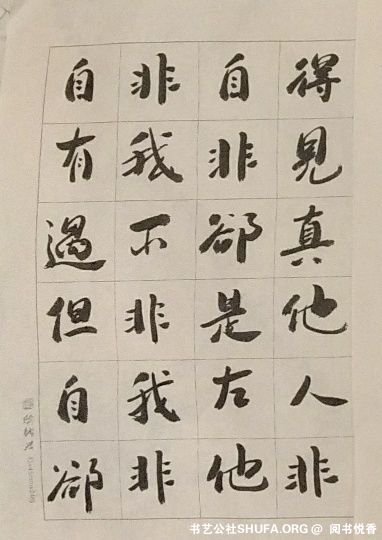 得見真他人非
自非郤是左他
非我不非我非
自有遇但自郤
书艺公社SHUFA.ORG @ 阅书悦香